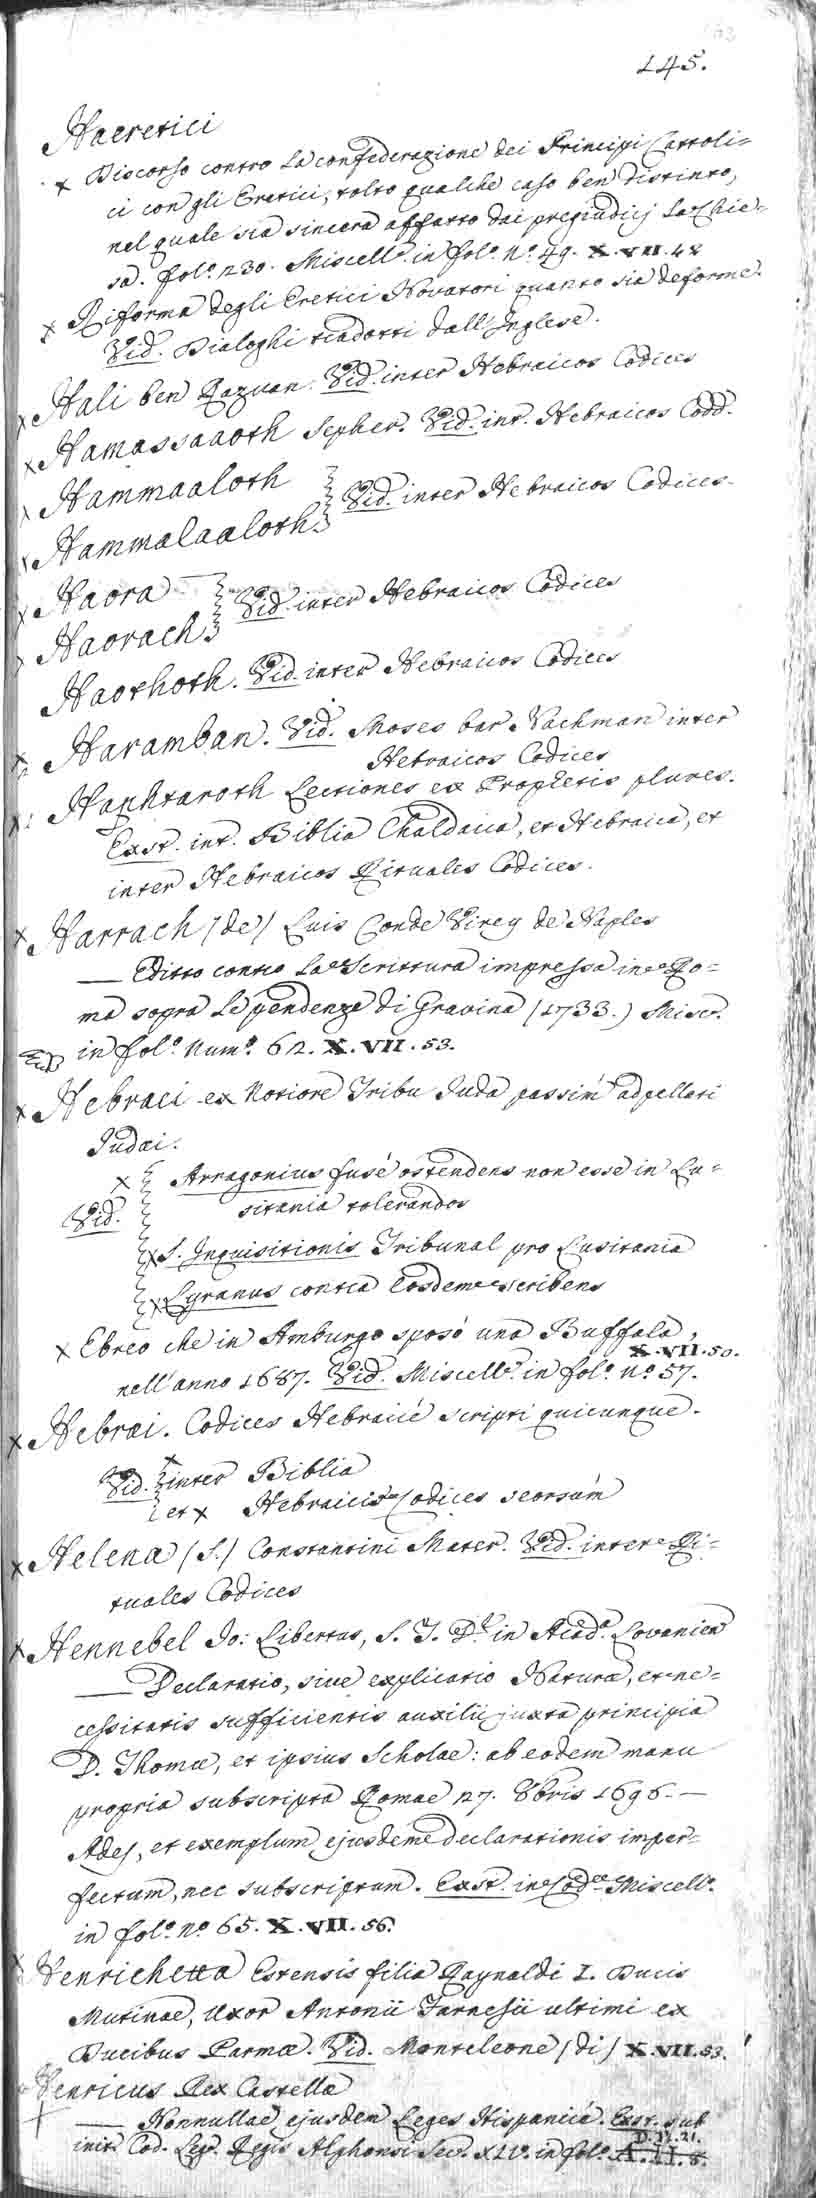 145.
Haeretici
x Discorso contro La confederazione dei Principi Cattoli=
ci con gli Eretici, tolto qualche caso ben distinto,
nel quale sia sincera affatto dai pregiudicj La Chie=
sa. fol.º 230. Miscell.º in fol.º n.º 49. X.VII.48
x Riforma degli Eretici Novatori quanto sia deforme.
Vid. Dialoghi tradotti dall'Inglese.
x Hali ben Razuan. Vid. inter Hebraicos Codices
x Hamassaaoth Sepher. Vid. int. Hebraicos Codd.
x Hammaaloth
Vid. inter Hebraicos Codices.
x Hammalaaloth.
x Haora
Vid. inter Hebraicos Codices
x Haorach.
Haorhoth. Vid. inter Hebraicos Codices
x Haramban. Vid. Moses bar Nachman inter
Hebraicos Codices
x Haphtaroth Lectiones ex Prophetis plures.
Exst. int. Biblia Chaldaica, et Hebraica, et
inter Hebraicos Rituales Codices.
x Harrach (de) Luis Conde Virey de Naples
— Editto contro La Scrittura impressa in Ro=
ma sopra Le pendenze di Gravina (1733.) Misc.
in fol.º Num.º 62. X.VII.53.
x Hebraei ex Notiore Tribu Juda passim adpellati
Judæi.
x Arragonius fusé ostendens non esse in Lu=
sitania tolerandos
Vid.
x S. Inquisitionis Tribunal pro Lusitania
x Lyranus contra Eosdem scribens
x Ebreo che in Amburgo sposò una Buffala,
nell'anno 1687. Vid. Miscell.º in fol.º n.º 57. X.VII.50.
x Hebræi. Codices Hebraicé scripti quicunque.
Vid. x inter Biblia
et x Hebraicis Codices seorsúm
x Helena (S.) Constantini Mater. Vid. inter Ri=
tuales Codices
x Hennebel Jo: Libertus, S. T. D.r in Acad.ª Lovanien
— Declaratio, sive explicatio Naturæ, et ne=
cessitatis sufficientis auxilii juxta principia
D. Thomæ, et ipsius Scholae: ab eodem manu
propria subscripta Romae 27. 8bris 1696. —
Adest, et exemplum ejusdem declarationis imper=
fectum, nec subscriptum. Exst. in Cod.ce Miscell.º
in fol.º n.º 65. X.VII.56.
x Henrichetta Estensis filia Raynaldi I. Ducis
Mutinae, Uxor Antonii Farnesii ultimi ex
Ducibus Parmæ. Vid. Monteleone (di) X.VII.53.
Henricus Rex Castellæ
— Nonnullae ejusdem Leges Hispanicé. Exst. sub
D.II.21.
init. Cod. Leg. Regis Alphonsi Sec. XIV. in fol.º A.II.8.